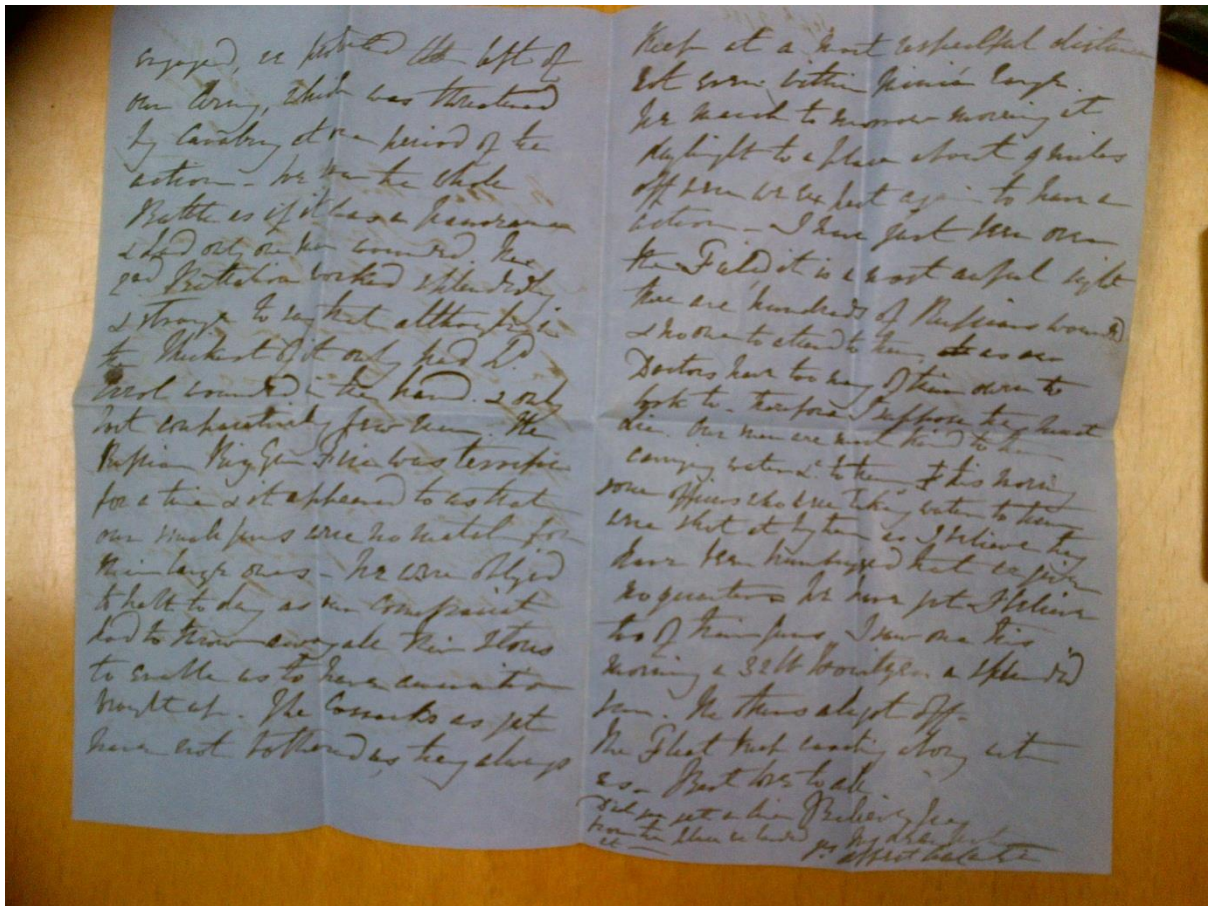 engaged, we protected the left of
our Army, which was threatened
by Cavalry at one period of the
action - We saw the whole
Battle as if it was a panorama
& had only one man wounded. The
2nd Battalion worked splendidly
& strange to say that although in
the thickest of it only had Ld.
wounded in the hand. & only
lost comparatively few men. The
Russian Big Gun Fire was terrific
for a time & it appeared to us that
our small guns were no match for
their large ones - We were obliged
to halt to day as our Commissariat
had to throw away all their stores
to enable us to have ammunition
brought up. The Cossacks as yet
have not bothered us, they always
keep at a most respectful distance
not even within Minié range.
We march to morrow morning at
daylight to a place about 9 miles
off were we expect again to have an
action - I have just been over
the Field it is a most awful sight
there are hundreds of Russians wounded
& no one to attend to them, as our
Doctors have too many of their own to
look to - therefore I suppose they must
die. Our men are most kind to them
carrying water &c. to them & this morning
some officers who were taking water to them
were shot at by them as I believe they
have been humbugged that we give
no quarters We have got I believe
two of their guns, I saw one this
morning a 32lb Howitzer a splendid
gun. The others all got off -
The Fleet kept coasting along with
us - Best love to all.
Believe me
Did you get a line
from the place we landed
at
my dear
yr affect